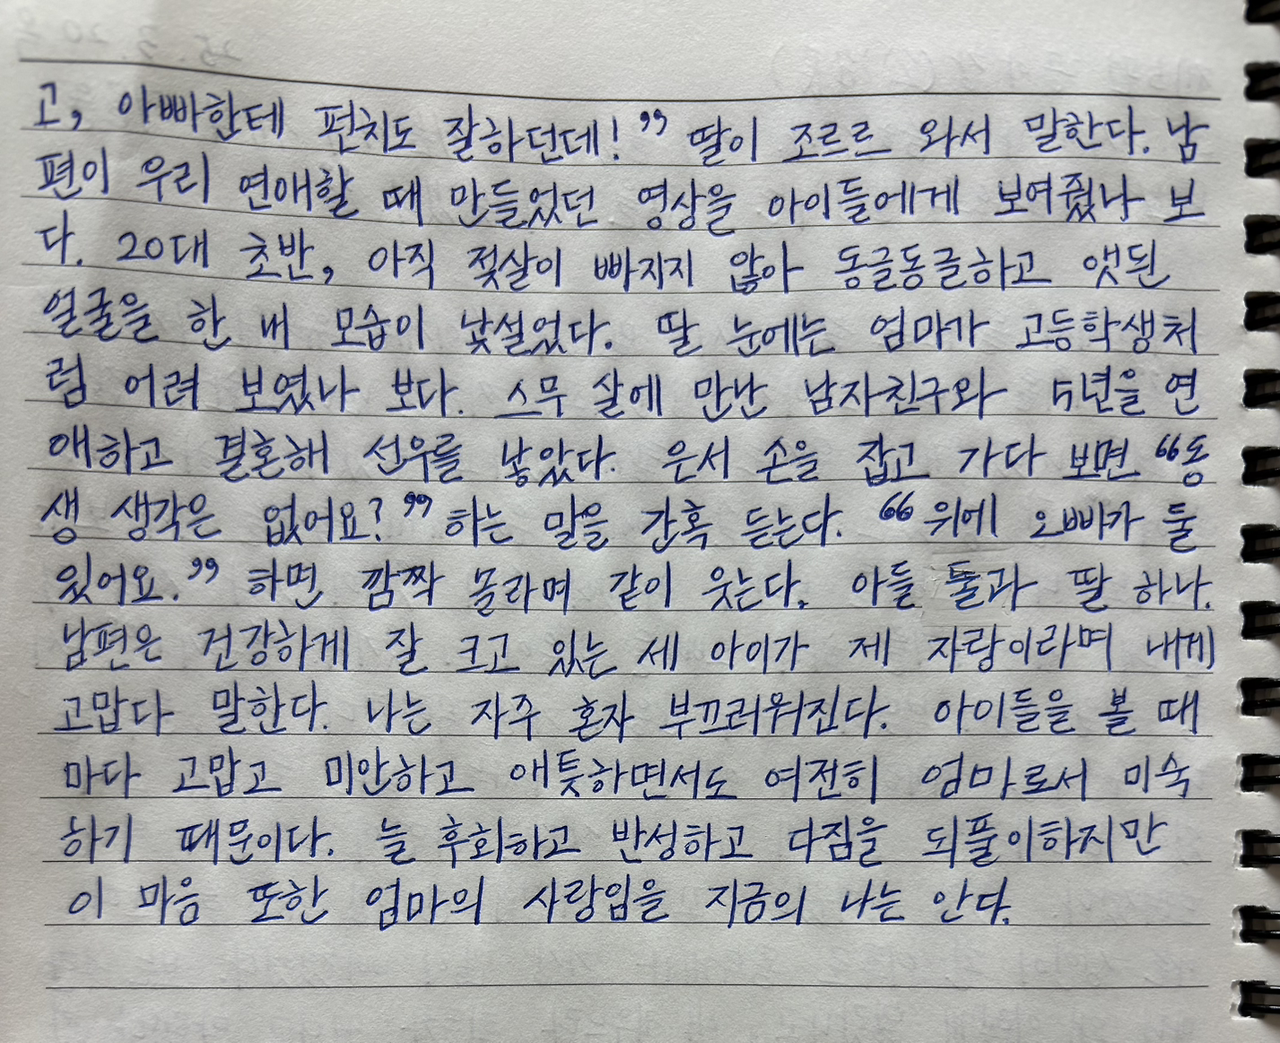 고, 아빠한테 펀치도 잘하던데!" 딸이 조르르 와서 말한다. 남
편이 우리 연애할 때 만들었던 영상을 아이들에게 보여줬나 보
다. 20대 초반, 아직 젖살이 빠지지 않아 동글동글하고 앳된
얼굴을 한 내 모습이 낯설었다. 딸 눈에는 엄마가 고등학생처
럼 어려 보였나 보다. 스무 살에 만난 남자친구와 5년을 연
애하고 결혼해 선우를 낳았다. 은서 손을 잡고 가다 보면 "동
생 생각은 없어요?" 하는 말을 간혹 듣는다. "위에 오빠가 둘
있어요." 하면 깜짝 놀라며 같이 웃는다. 아들 둘과 딸 하나.
남편은 건강하게 잘 크고 있는 세 아이가 제 자랑이라며 내게
고맙다 말한다. 나는 자주 혼자 부끄러워진다. 아이들을 볼 때
마다 고맙고 미안하고 애틋하면서도 여전히 엄마로서 미숙
하기 때문이다. 늘 후회하고 반성하고 다짐을 되풀이하지만
이 마음 또한 엄마의 사랑임을 지금의 나는 안다.